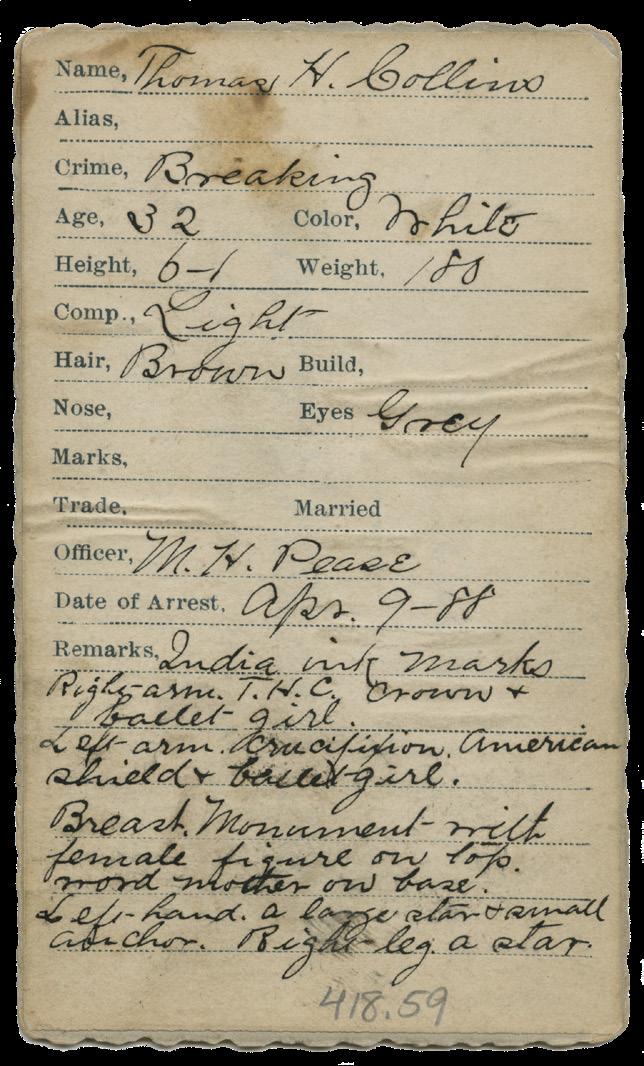 Name, Thomas H. Collins
Alias,
Crime, Breaking
Age, 32 Color, White
Height, 6-1 Weight, 180
Comp., Light
Hair, Brown Build,
Nose, Eyes Grey
Marks,
Trade, Married
Officer, M. H. Pease
Date of Arrest, Apr. 9-88
Remarks, India ink marks
Right arm. T. H. C. crown +
ballet girl.
Left arm. Crucifixion. American
shield + ballet girl.
Breast. Monument with
female figure on top.
word mother on base.
Left hand. a large star + small
anchor. Right leg. a star.
418.59